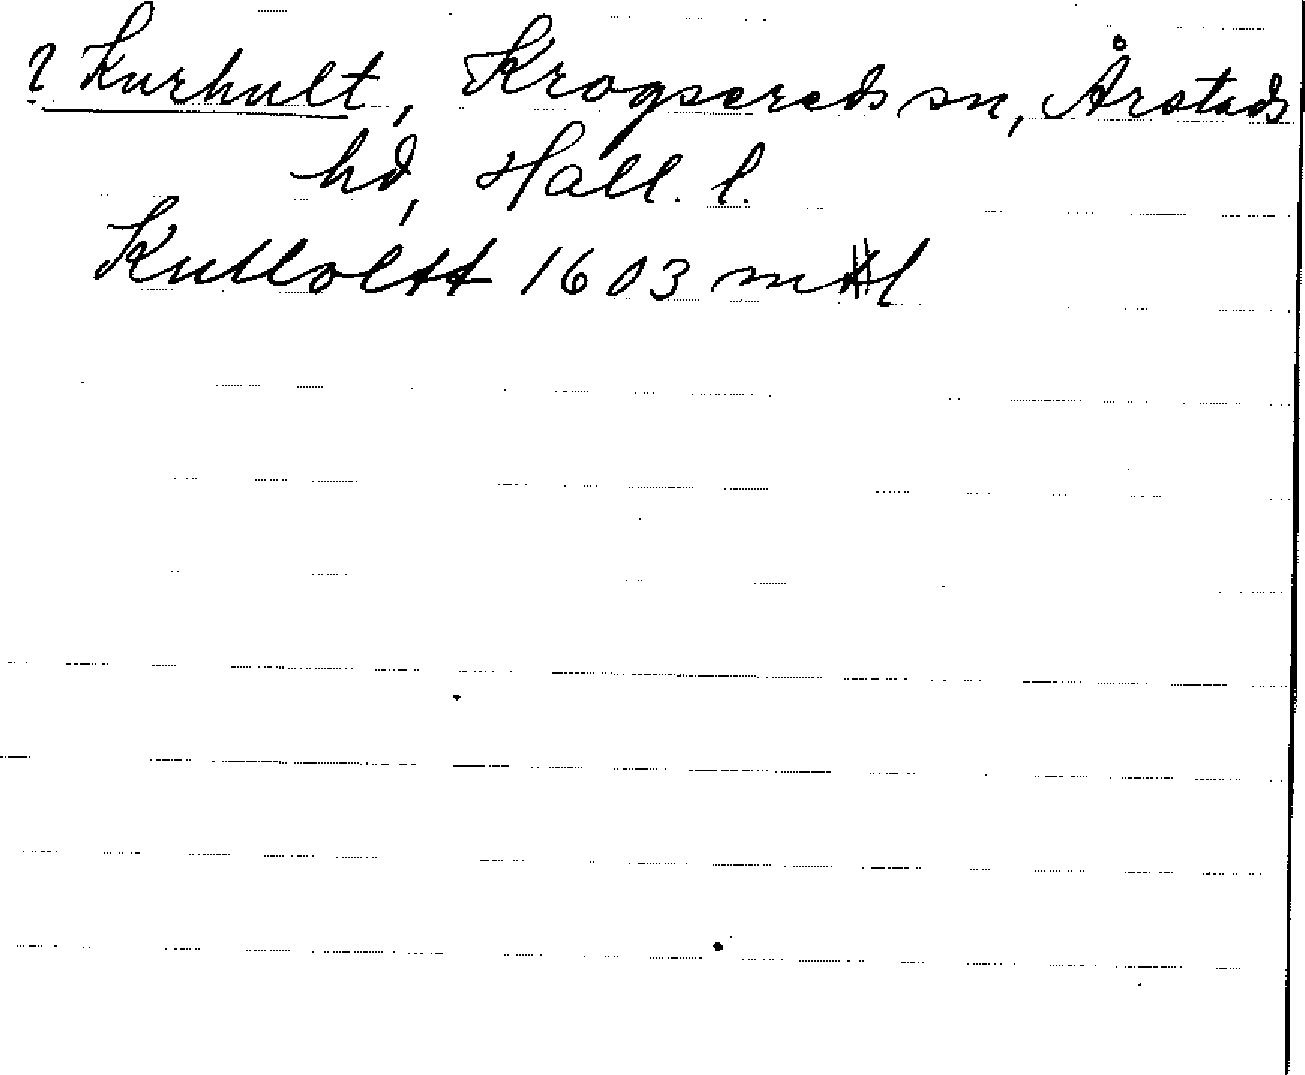 ? Kurhult, Krogsereds sn, Årstads
hd, Hall. l.
Kulloltt 1603 mtl